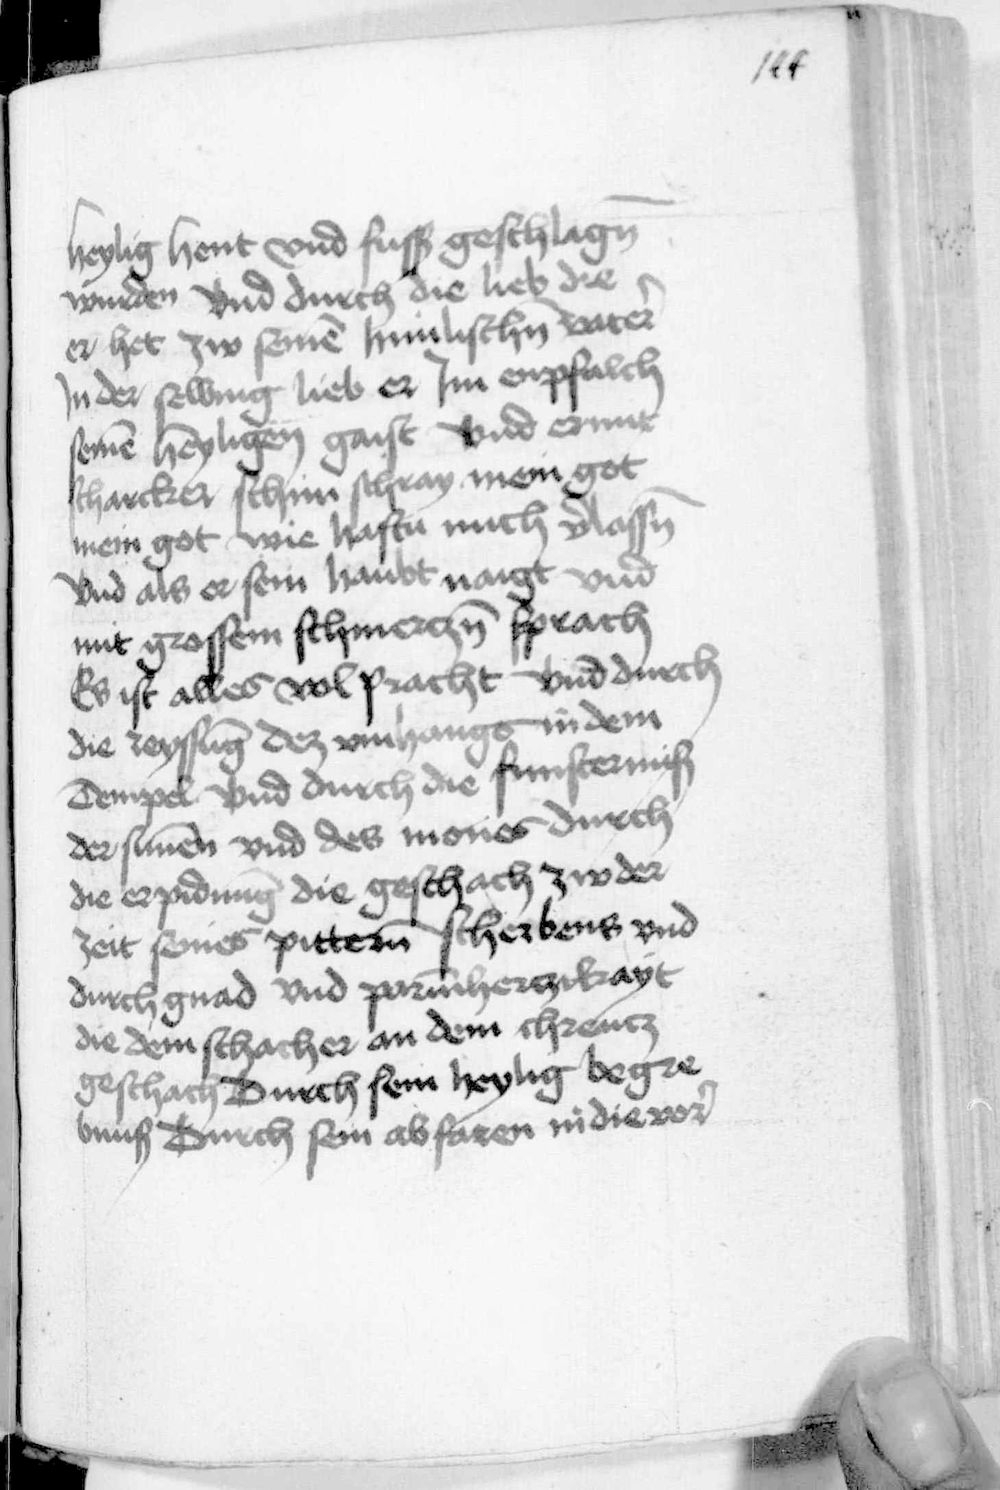 144
heylig hent vnd fuss geschlagn̄
wurden Vnd durch die lieb die
er het zw seinē himlischn̄ vater
In der selbing lieb er Im enpfalch
seinē heyligen gaist Vnd er mit
starcker schim schray mein got
mein got wie hastu mich vlassn̄
Vnd als er sein haubt naigt vnd
mit grossem schmerczn̄ sprach
Es ist alles vol pracht Vnd durch
die reyssūg dez vmhangs in dem
Tempel Vnd durch die finsternuß
der sunēn vnd des mones durch
die erpidmūg die geschach zw der
zeit seines pittern̄ sterbens vnd
durch gnad vnd parmherczikayt
die dem schacher an dem chreucz
geschach Durch sein heylig begre
bnuß Durch sein ab faren in die vor